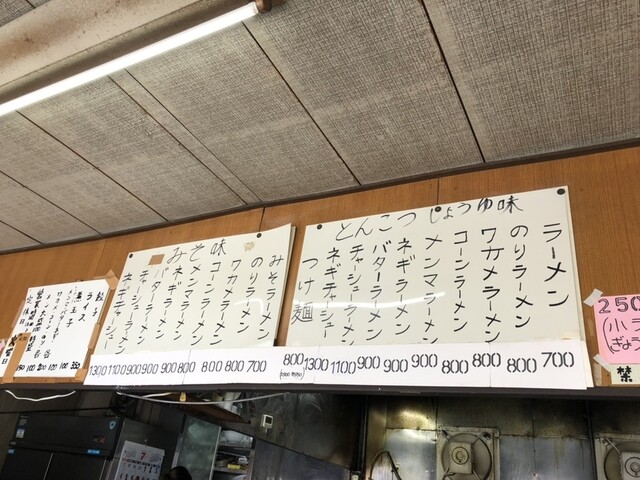 250
(小
ぎょう
禁
とんこつ しょうゆ味
ラーメン
のりラーメン
ワカメラーメン
コーンラーメン
メンマラーメン
ネギラーメン
バターラーメン
チャーシューメン
ネギチャーシューメン
つけ麺
800 1300 1100 900 900 900 800 800 800 700
みそ味
みそラーメン
のりラーメン
ワカメラーメン
コーンラーメン
メンマラーメン
ネギラーメン
バターラーメン
チャーシューメン
ネギチャーシュー
1300 1100 900 900 900 800 800 800 700
ライス
7